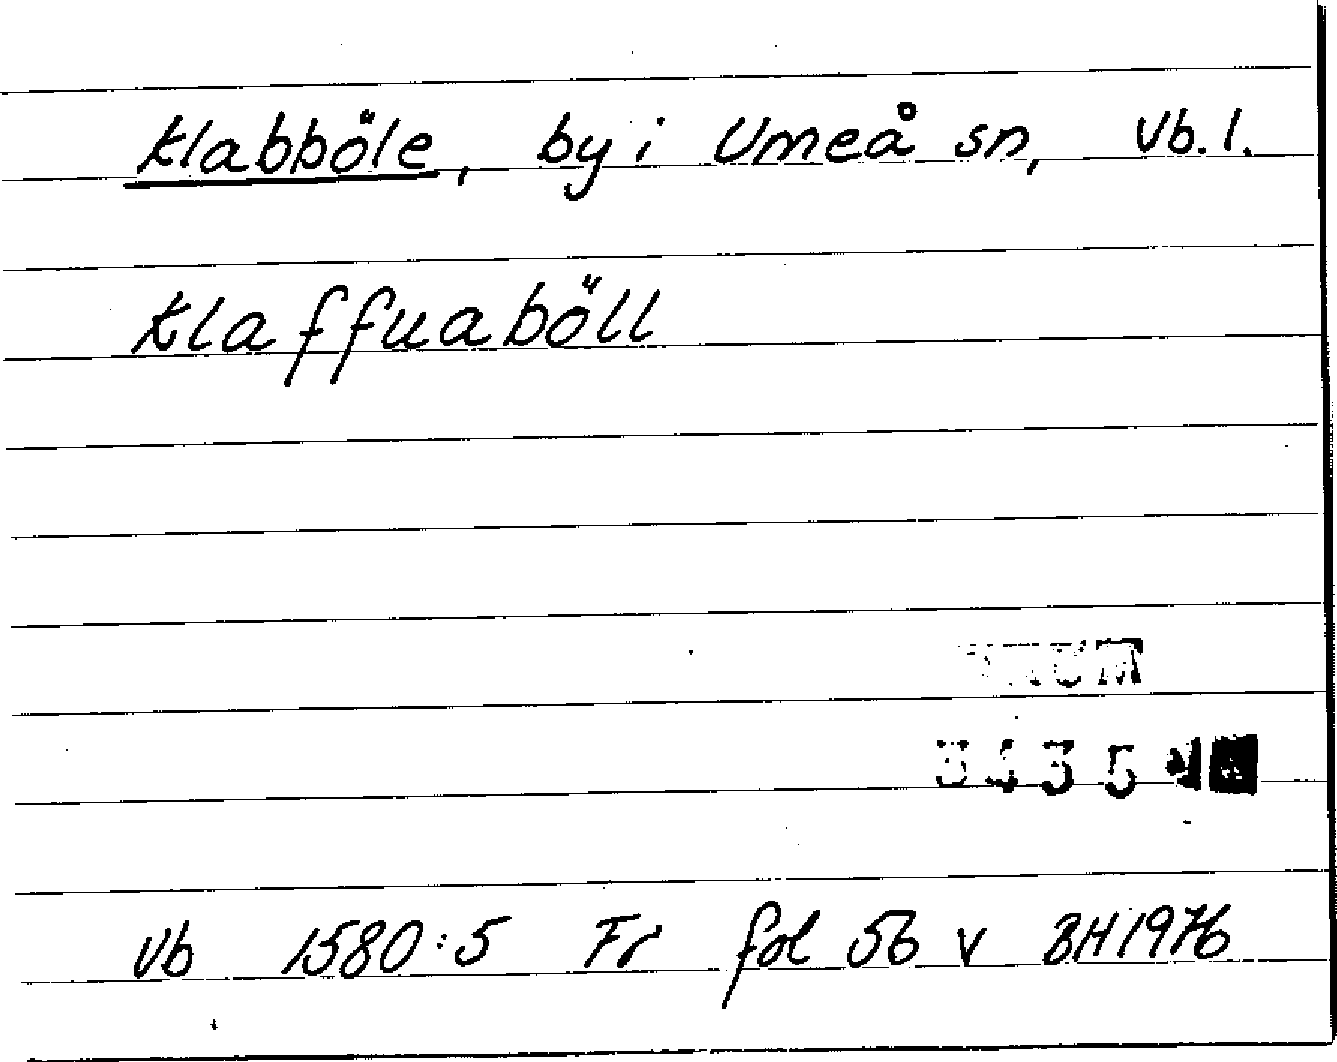 Klabböle, by i Umeå sn, Vb. l.
Klaffuaböll
3435
Vb 1580:5 Fr fol 56 v BH 1976